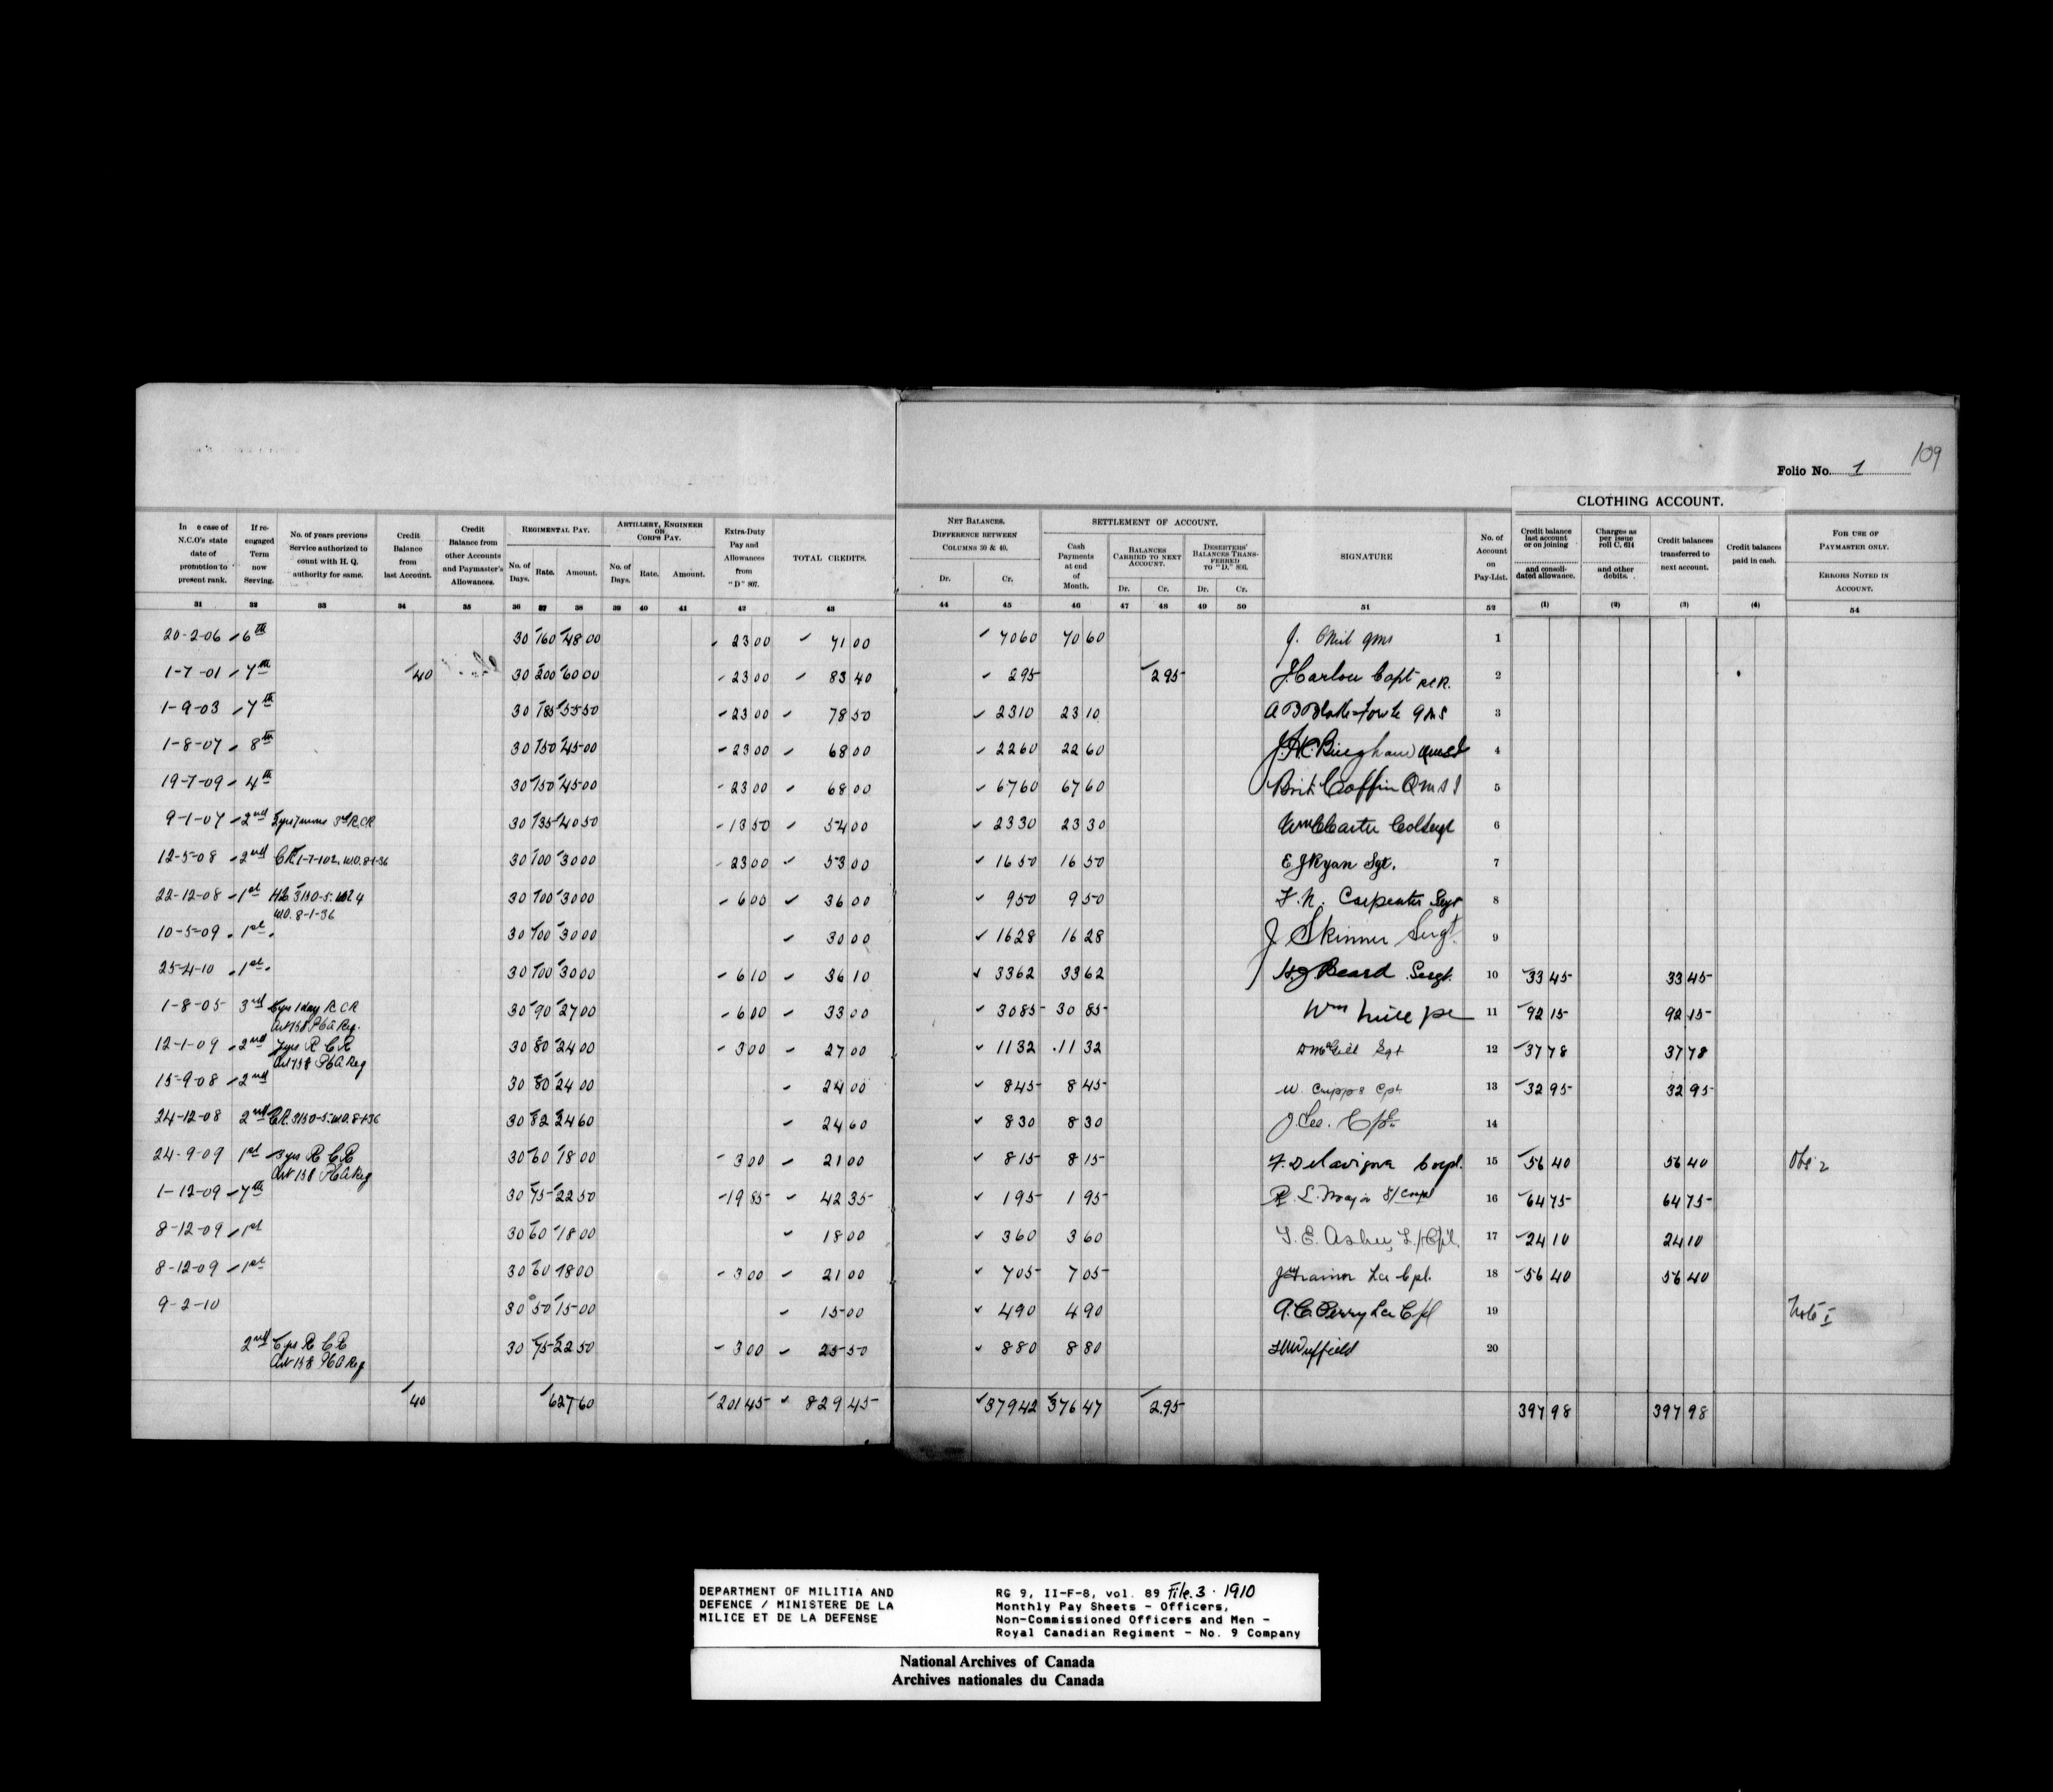 109
Folio No. 1
CLOTHING ACCOUNT.
In e case of N.C.O's state date of promotion to present rank. If re-engaged Term now Serving. No. of years previous Service authorized to count with H. Q. authority for same. Credit Balance from last Account. Credit Balance from other Accounts and Paymaster's Allowances. REGIMENTAL PAY. No. of Days. Rate. Amount. ARTILLERY, ENGINEER OR CORPS PAY. No. of Days. Rate. Amount. Extra-Duty Pay and Allowances from "D" 807. TOTAL CREDITS. NET BALANCES. DIFFERENCE BETWEEN COLUMNS 30 & 40. Dr. Cr. SETTLEMENT OF ACCOUNT. Cash Payments at end of Month. BALANCES CARRIED TO NEXT ACCOUNT. Dr. Cr. DESERTERS' BALANCES TRANSFERRED TO "D." 808. Dr. Cr. SIGNATURE No. of Account on Pay-List. Credit balance last account or on joining and consolidated allowance. Charges as per issue roll C. 614 and other debits. Credit balances transferred to next account. Credit balances paid in cash. FOR USE OF PAYMASTER ONLY. ERRORS NOTED IN ACCOUNT.
31 32 33 34 35 36 37 38 39 40 41 42 43 44 45 46 47 48 49 50 51 52 (1) (2) (3) (4) 54
20-2-06 6th 30 160 48 00 23 00 71 00 70 60 70 60 J. Qms 1
1-7-01 7th 40 30 200 60 00 23 00 83 40 2 95 2 95 J Harlow Capt RCR. 2
1-9-03 7th 30 185 55 50 23 00 78 50 23 10 23 10 A B Qms 3
1-8-07 8th 30 150 45 00 23 00 68 00 22 60 22 60 Bingham 4
19-7-09 4th 30 150 45 00 23 00 68 00 67 60 67 60 Coffin QMSI 5
9-1-07 2nd RCR 30 135 40 50 13 50 54 00 23 30 23 30 Wm Carter Col Sergt 6
12-5-08 2nd 30 100 30 00 23 00 53 00 16 50 16 50 E J Ryan Sgt. 7
22-12-08 1st 30 100 30 00 6 00 36 00 9 50 9 50 F. N. Carpenter Sergt 8
M.O. 8-1-36
10-5-09 1st 30 100 30 00 30 00 16 28 16 28 J Skinner Sergt. 9
25-4-10 1st 30 100 30 00 6 10 36 10 33 62 33 62 Beard Sergt. 10 33 45 33 45
1-8-05 3rd 6 yrs 1 day R C R 30 90 27 00 6 00 33 00 30 85 30 85 Wm 11 92 15 92 15
Art 158 P&A Reg.
12-1-09 2nd 7 yrs R C R 30 80 24 00 3 00 27 00 11 32 11 32 D McGill Sgt 12 37 78 37 78
Art 158 P&A Reg
15-9-08 2nd 30 80 24 00 24 00 8 45 8 45 W. Cripps Cpl 13 32 95 32 95
24-12-08 2nd 30 82 24 60 24 60 8 30 8 30 J Lee. Cpl. 14
24-9-09 1st 3 yrs R C R 30 60 18 00 3 00 21 00 8 15 8 15 F. Delavigne Corpl. 15 56 40 56 40 Obs 2
Art 158 P&A Reg
1-12-09 7th 30 75 22 50 19 85 42 35 1 95 1 95 R. L. Major 16 64 75 64 75
8-12-09 1st 30 60 18 00 18 00 3 60 3 60 T. E. L/Cpl. 17 24 10 24 10
8-12-09 1st 30 60 18 00 3 00 21 00 7 05 7 05 J Trainor Lce Cpl. 18 56 40 56 40
9-2-10 30 50 15 00 15 00 4 90 4 90 A. C. Perry Lce Cpl 19 Note I
2nd R C R 30 75 22 50 3 00 25 50 8 80 8 80 Duffield 20
Art 158 P&A Reg
40 627 60 201 45 829 45 379 42 376 47 2.95 397 98 397 98
DEPARTMENT OF MILITIA AND
DEFENCE / MINISTERE DE LA
MILICE ET DE LA DEFENSE
RG 9, II-F-8, vol. 89 File. 3 · 1910
Monthly Pay Sheets - Officers,
Non-Commissioned Officers and Men -
Royal Canadian Regiment - No. 9 Company
National Archives of Canada
Archives nationales du Canada